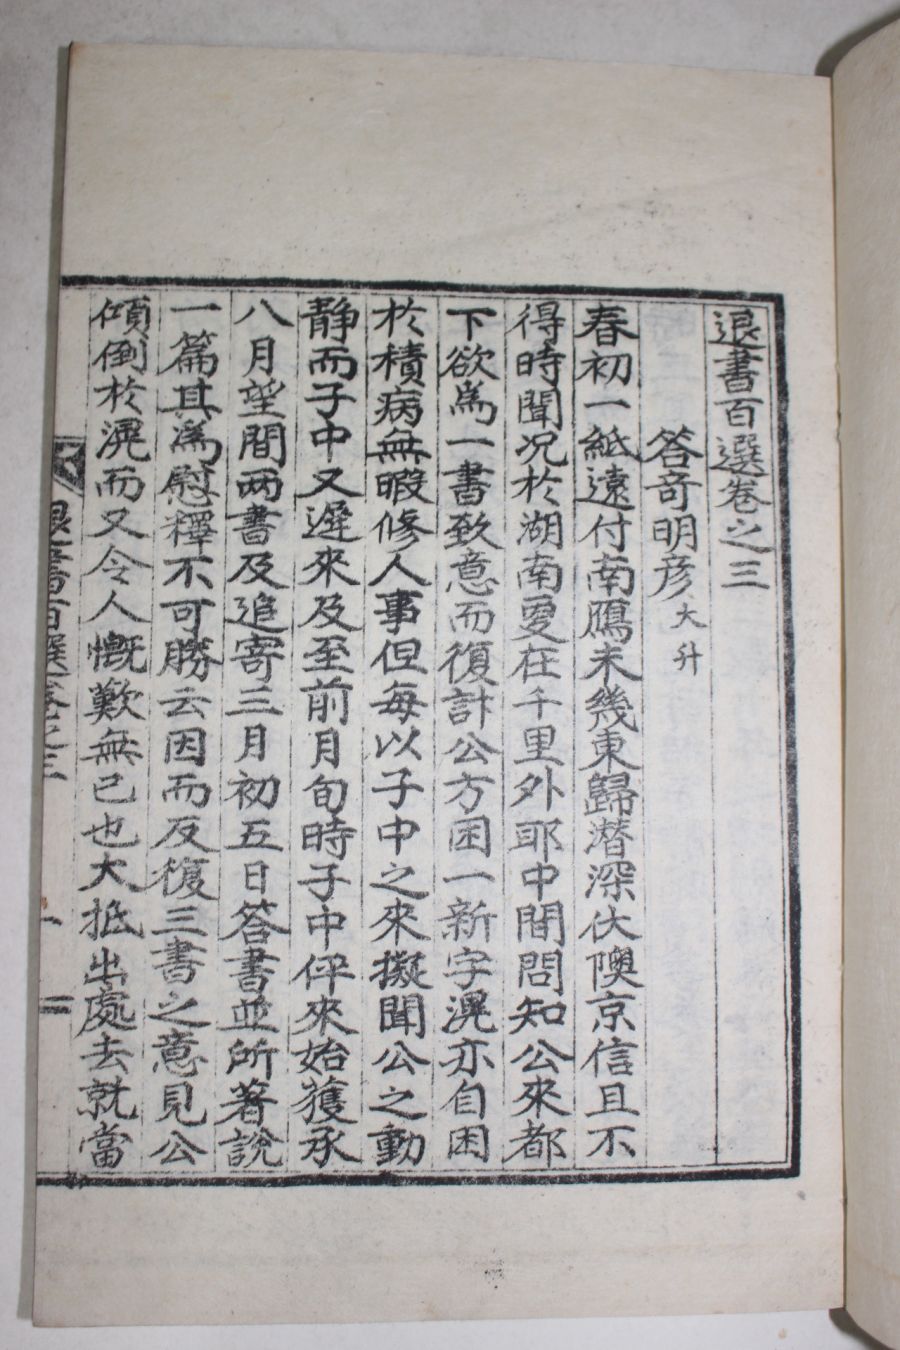 退書百選卷之三
答奇明彦 大升
春初一紙遠付南鴈未幾東歸潜深伏隩京信且不
得時聞况於湖南夐在千里外耶中間問知公來都
下欲爲一書致意而復計公方困一新字滉亦自困
於積病無暇修人事但每以子中之來擬聞公之動
静而子中又遲來及至前月旬時子中伻來始獲承
八月望間两書及追寄三月初五日答書並所著說
一篇其爲慰釋不可勝云因而反復三書之意見公
傾倒於滉而又令人慨歎無已也大抵出處去就當
退書百選卷之三 一